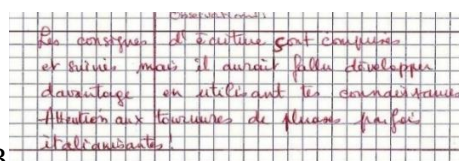 Observations:
Les consignes d'écriture sont comprises
et suivies mais il aurait fallu développer
davantage en utilisant tes connaissances
Attention aux tournures de phrases parfois
italianisantes !
3